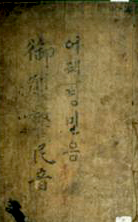 어제경민음
御製警民音